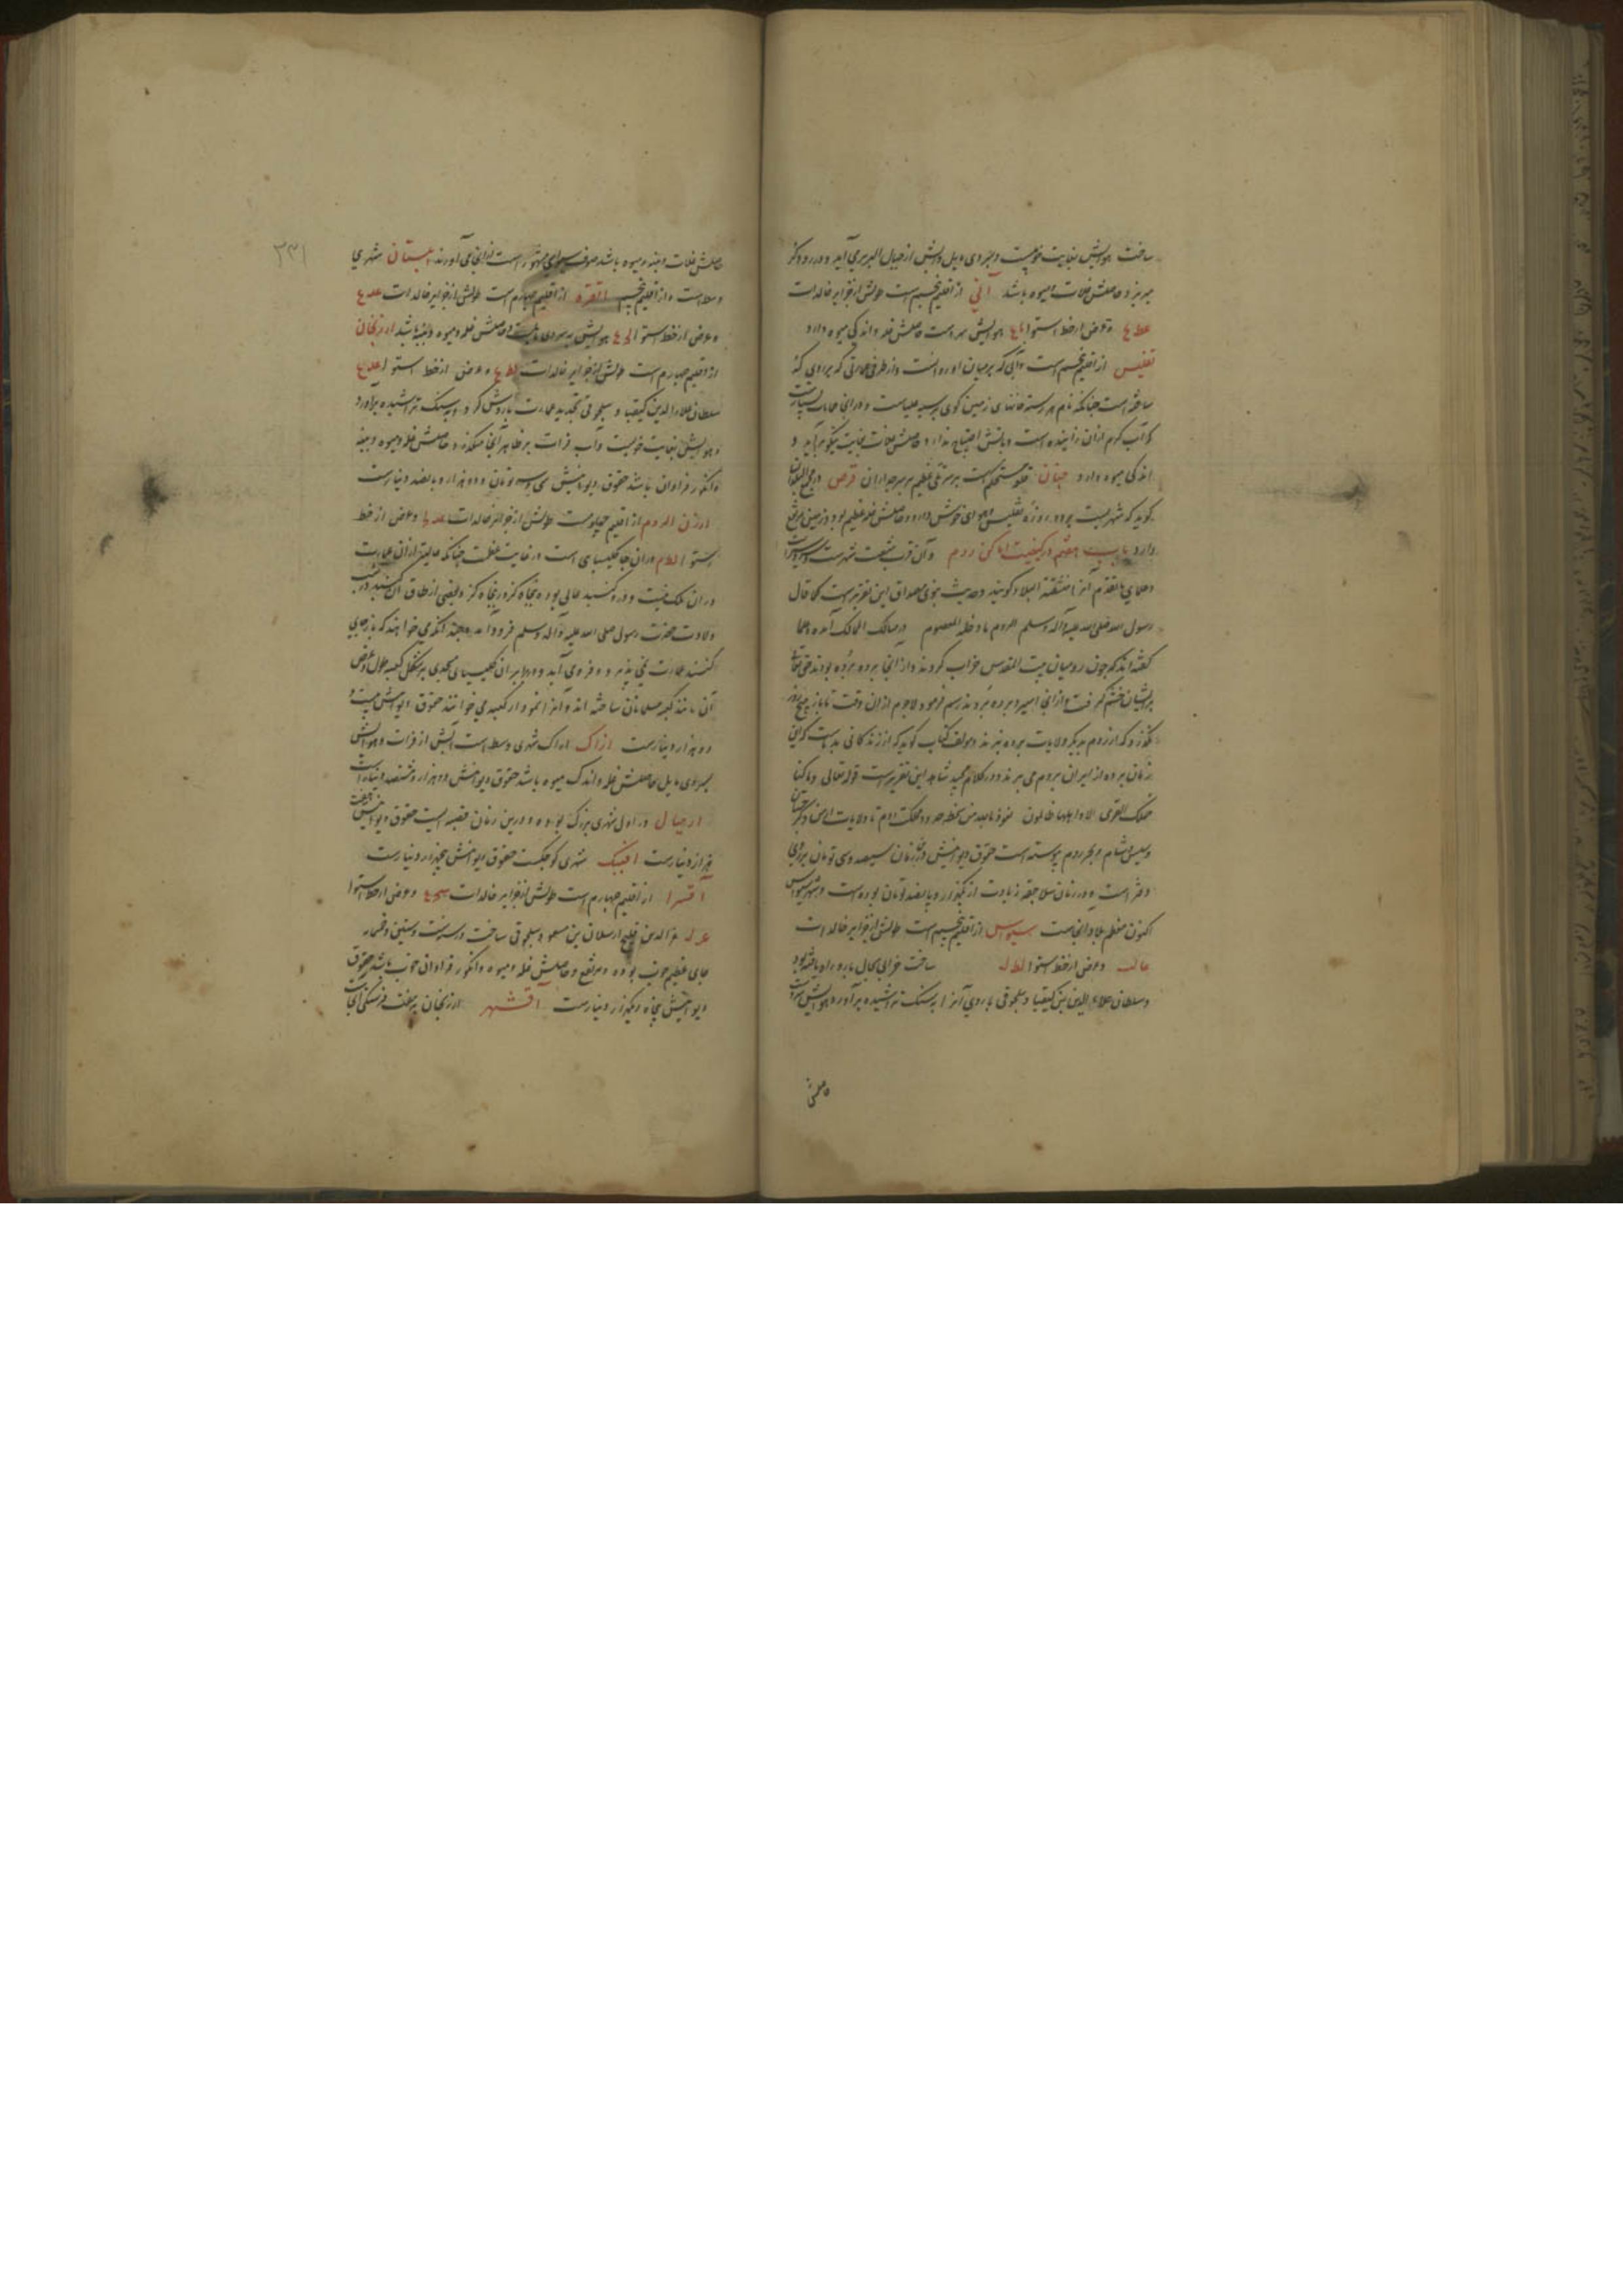 ساخت هوایش بغایت خوبست و بسردی مایل و آبش از جبال البرز می‌آید و در رود کر
میریزد حاصلش غلات و میوه باشد آنی از اقلیم پنجم است طولش از جزایر خالدات
عط ع و عرض از خط استوا هوایش سرد است حاصلش غله و اندکی میوه دارد
تفلیس از اقلیم پنجم است و آبی که بر میان او روانست و از طرفی عمارتی که بر روی کر
ساخته است چنانکه بام هر رسته خانهای زمین کوی بر سر علیاست و در آنجا حمامات بسیارست
که آب گرم ازان زاینده است و بآتش احتیاج ندارد و حاصلش غلات بغایت نیکو بر آید و
اندکی میوه دارد خنان قلعه مستحکم است بر سر تلی عظیم بر سر حد اران قرص در مجمع البلدان
گوید که شهریست بر دو روزه تفلیس هوای خوش دارد و حاصلش غله عظیم بود و زمین مرتفع
دارد باب هفتم در کیفیت اماکن روم و آن قرب شصت شهرست و سردسیرست
و علمای ما تقدم آنرا منتقة البلاد گویند و حدیث نبوی مصداق این تقریر است کما قال
رسول الله صلی الله علیه و آله وسلم الروم ماد ظلمه المعصوم در مسالک الممالک آمده و علما
گفته‌اند که چون رومیان بیت المقدس خراب کردند و از آنجا برده برده بودند حق تعالی
بر ایشان خشم گرفت و از آنجا اسیر و برده بردند رسم فرمود لاجرم ازان وقت تا باز هیچ روز
نگذرد که از روم بدیگر ولایات برده نبرند و مولف کتاب گوید که از زندگانی بد ماست که این
زمان برده از ایران بروم می‌برند و در کلام مجید شاهد این تقریر است قوله تعالی و ما کنا
مهلک القری الا و اهلها ظالمون نعوذ بالله من سخطه حدود مملکت روم تا ولایات ارمن و گرجستان
و سیس و شام و بحر روم پیوسته است حقوق دیوانیش درین زمان سیصد و سی تومان بر روی
دفتر است و در زمان سلاجقه زیادت از یکهزار و پانصد تومان بوده است و شهر سیواس
اکنون معظم بلاد آنجاست سیواس از اقلیم پنجم است طولش از جزایر خالدات
عا ل و عرض از خط استوا لط ل ساخت خرابی بحال بارو راه یافته بود
و سلطان علاء الدین کیقباد سلجوقی باروی آنرا بسنگ تراشیده بر آورد هوایش سرد است
حاصلش
۲۳۱
حاصلش غلات و پنبه و میوه باشد صوف سیواسی مشهور است از آنجا می‌آورند ابستان شهری
وسط است و از اقلیم پنجم انقره از اقلیم چهارم است طولش از جزایر خالدات
و عرض از خط استوا هوایش بسردی مایلست و حاصلش غله و میوه و پنبه باشد ارزنجان
از اقلیم چهارم است طولش از جزایر خالدات و عرض از خط استوا
سلطان علاء الدین کیقباد سلجوقی تجدید عمارت باروش کرد و از سنگ تراشیده برآورد
و هوایش بغایت خوبست و آب فرات بر ظاهر آنجا میگذرد حاصلش غله و میوه و پنبه
و انگور فراوان باشد حقوق دیوانیش سی و سه تومان و دو هزار و پانصد دینارست
ارزن الروم از اقلیم چهارمست طولش از جزایر خالدات و عرض از خط
استوا در آنجا کلیسیای است در غایت عظمت چنانکه عالیتر ازان عمارت
در ان ملک نیست و درو گنبد عالی بوده پنجاه گز در پنجاه گز و بعضی از طاق آن گنبد در شب
ولادت حضرت رسول صلی الله علیه و آله وسلم فرود آمد و هر چند آنکه می‌خواهند که باز بجای
کنند عمارت نمی‌پذیرد و فرو می‌آید و در برابر ان کلیسیا مسجدی بر شکل کعبه بطول و عرض
آن مانند کعبه مسلمانان ساخته‌اند و آنرا نمودار کعبه می‌خوانند حقوق دیوانیش بیست و
دو هزار دینارست ازاک اراک شهری وسط است آبش از فرات و هوایش
بسردی مایل حاصلش غله و اندک میوه باشد حقوق دیوانیش دو هزار و ششصد دینار است
ارجبال در اول شهری بزرگ بوده و درین زمان قصبه ایست حقوق دیوانیش هفت
هزار دینارست افتیک شهری کوچکست حقوق دیوانیش پنجهزار دینارست
آقسرا از اقلیم چهارم است طولش از جزایر خالدات و عرض از خط استوا
عز الدین قلیج ارسلان بن مسعود سلجوقی ساخت در سنه ست و ستین و خمسمایه
جای عظیم خوب بوده و مرتفع و حاصلش غله و میوه و انگور فراوان خوب باشد حقوق
دیوانیش پنجاه و یکهزار دینارست آقشهر ارزنجان بر هفت فرسنگی آنجاست